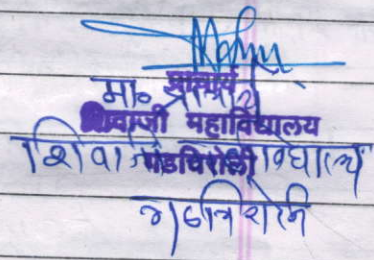 मा० प्राचार्य
प्राचार्य
शिवाजी महाविद्यालय
गडचिरोली
शिवाजी महाविद्यालय
गडचिरोली